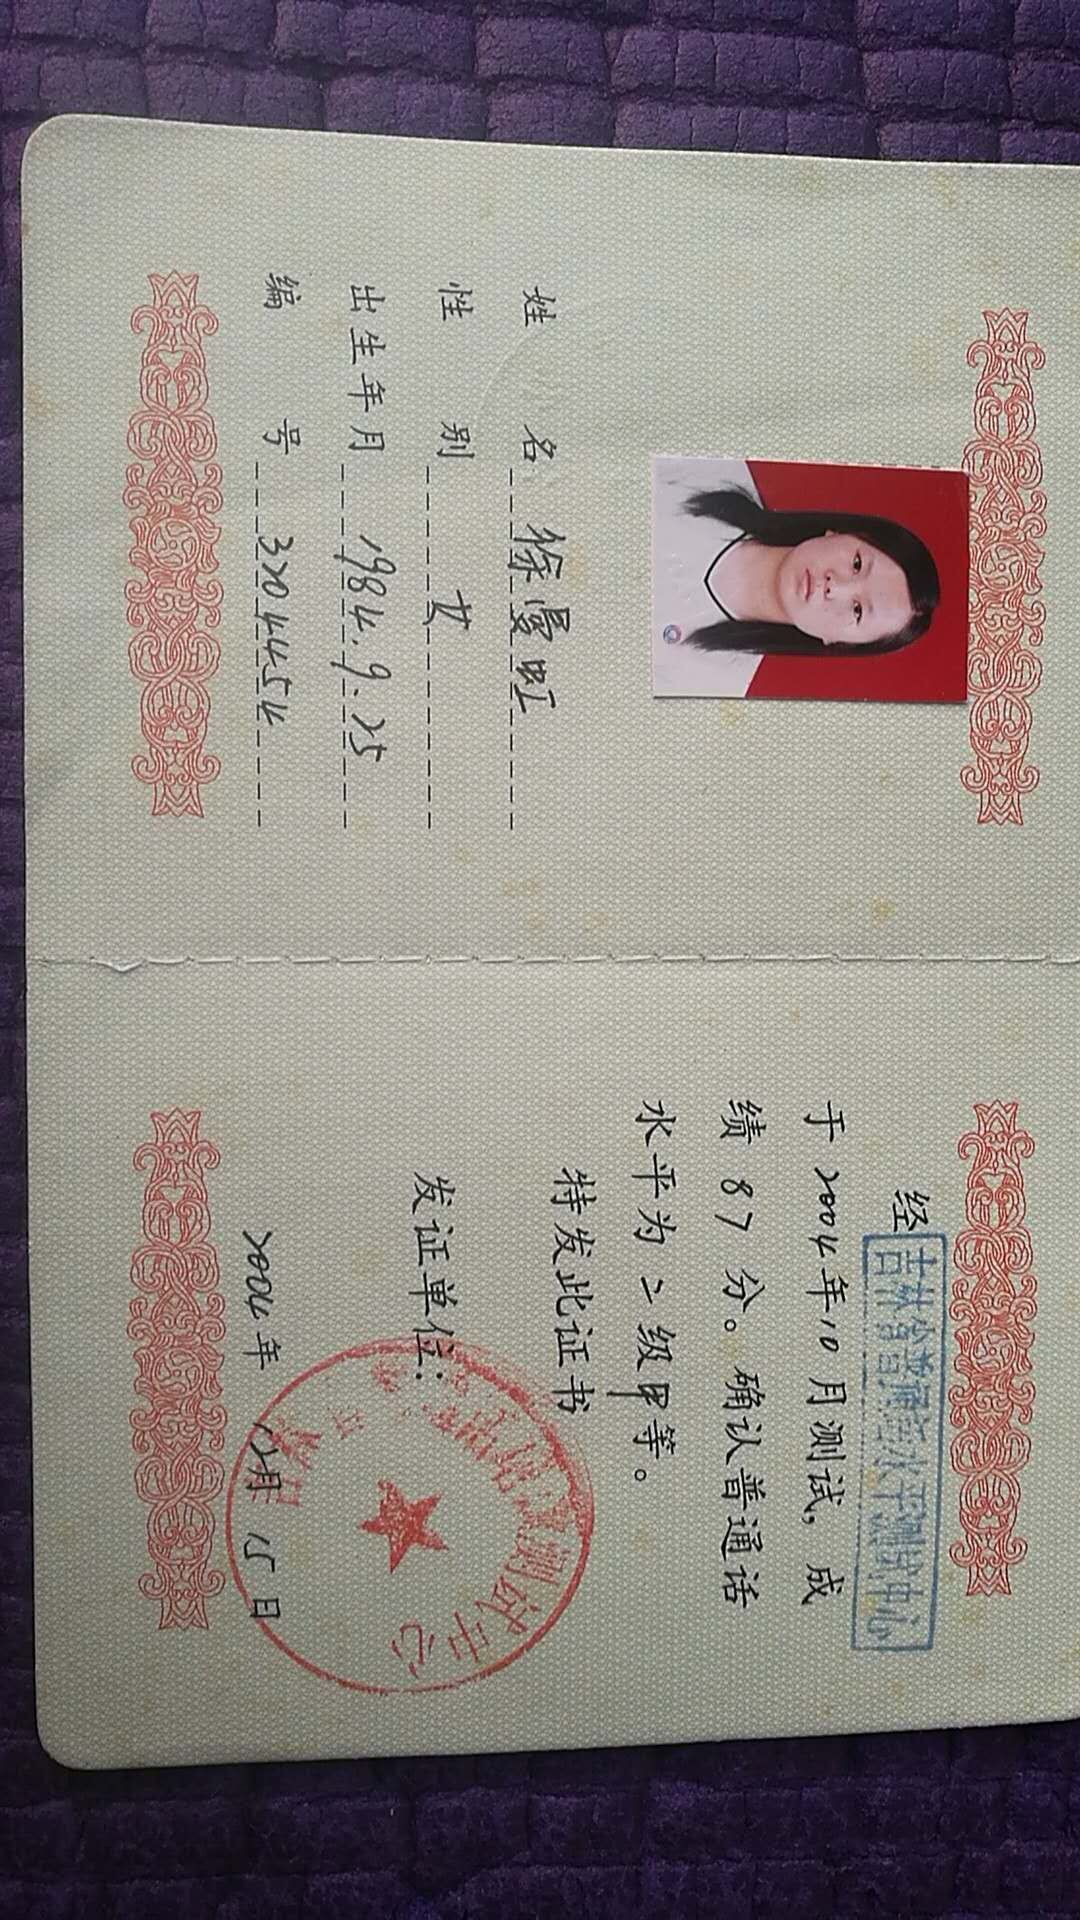 姓 名 徐曼虹
性 别 女
出生年月 1984.9.25
编 号 3204454
经 吉林省普通话水平测试中心
于2004年10月测试，成
绩 87 分。确认普通话
水平为 二 级甲等。
特发此证书
发证单位：
测试中心
2004年 12月 15日